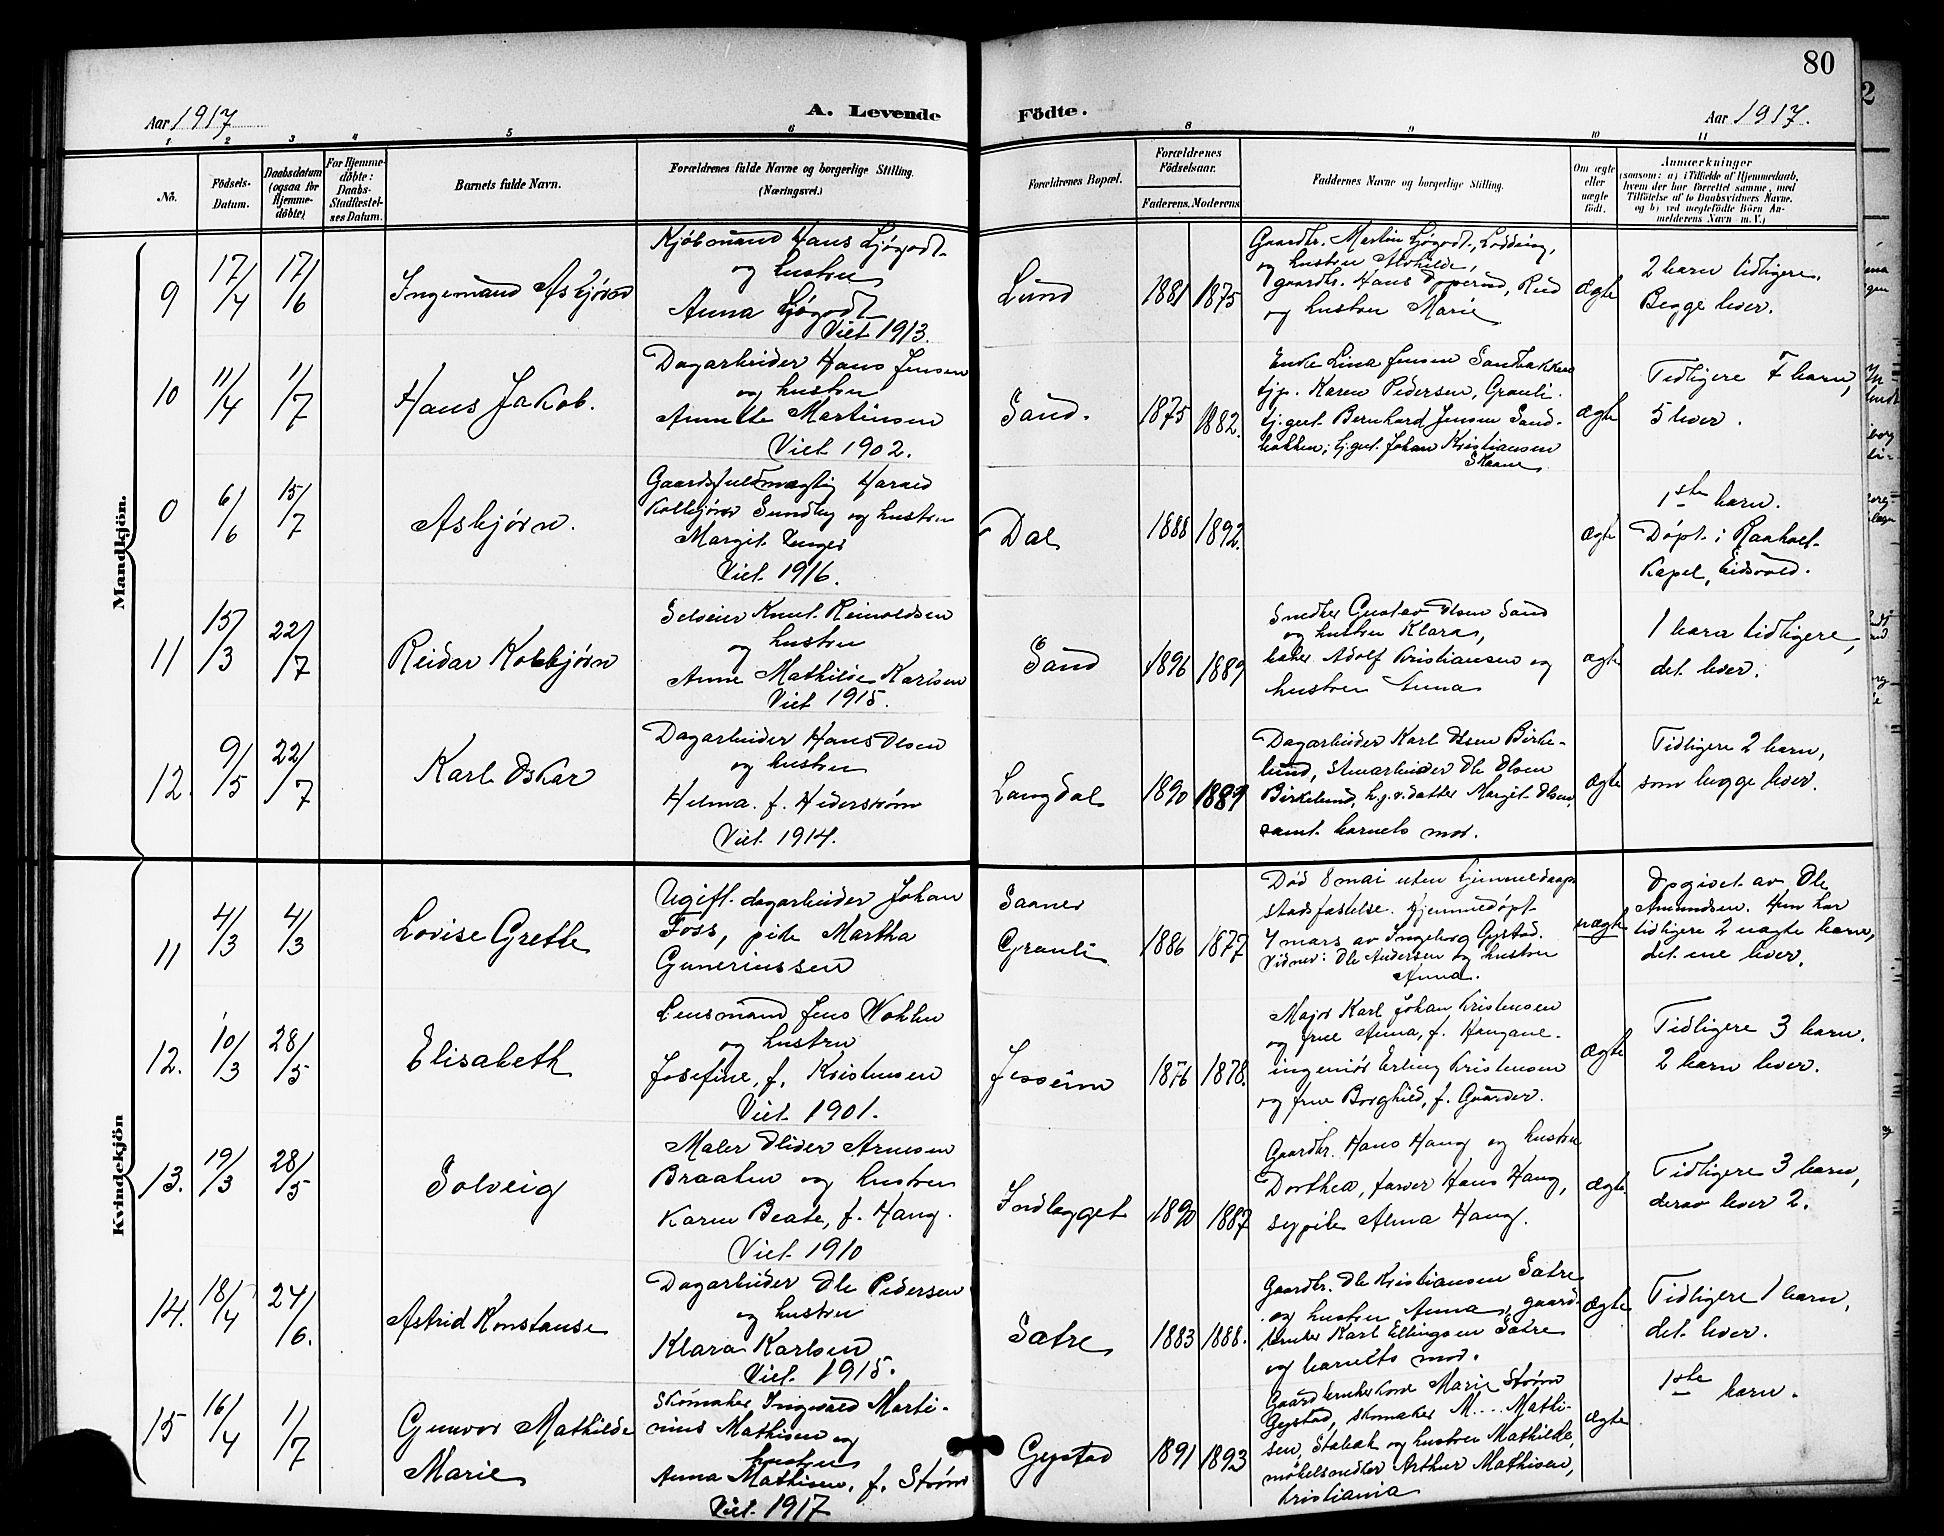 80
Aar 1917
A. Levende
Födte.
Aar 1917.
1 2 3 4 5 6 8 9 10 11
Nö.
Födsels-
Datum.
Daabsdatum
(ogsaa for
Hjemme-
döbte)
For Hjemme-
döbte:
Daabs-
Stadfæstel-
ses Datum.
Barnets fulde Navn.
Forældrenes fulde Navne og borgerlige Stilling.
(Næringsvei.)
Forældrenes Bopæl.
Forældrenes
Födselsaar.
Faderens. Moderens.
Faddernes Navne og borgerlige Stilling.
Om ægte
eller
uægte
födt.
Anmærkninger
(saasom: a) i Tilfælde af Hjemmedaab,
hvem der har forrettet samme, med
Tilföielse af to Daabsvidners Navne.
og b) ved uægtefödte Börn An-
melderens Navn m. V.)
Mandkjön.
9
17/4
17/6
Ingemund Asbjørn
Kjøbmand Hans Ljøgodt
og hustru
Anna Ljøgodt
Viet 1913.
Lund
1881
1875
Gaardbr. Martin Ljøgodt, Lodding,
og hustru Alvhilde,
gaardbr. Hans Opperud, Rud
og hustru Marie
ægte
2 barn tidligere.
Begge lever.
10
11/4
1/7
Hans Jakob.
Dagarbeider Hans Jensen
og hustru
Annette Martinsen
Viet 1902.
Sand.
1875
1882.
Enke Lina Jensen Sandbakken
tjp. Karen Pedersen, Grauli.
tj.gut Bernhard Jensen Sand-
bakken; tj.gut Johan Kristiansen
Skaane
ægte
Tidligere 7 barn,
5 lever.
0
6/6
15/7
Asbjørn.
Gaardsfuldmægtig Harald
Kolbjørn Sundby og hustru
Margit Unger
Viet 1916.
Dal
1888
1892.
ægte
1ste barn.
Døpt i Raaholt
Kapel, Eidsvold.
11
15/3
22/7
Reidar Kolbjørn
Selveier Knut Reinoldsen
og hustru
Anne Mathilde Karlsen
Viet 1915.
Sand
1896
1889
Snedker Gustav Olsen Sand
og hustru Klara,
baker Adolf Kristiansen og
hustru Anna
ægte
1 barn tidligere,
det lever.
12.
9/5
22/7
Karl Oskar
Dagarbeider Hans Olsen
og hustru
Helma f. Hederstrøm
Viet 1914.
Langdal
1890
1889
Dagarbeider Karl Olsen Birke-
lund, stenarbeider Ole Olsen
Birkelund, h.j.v. datter Margit Olsen,
samt barnets mor.
ægte
Tidligere 2 barn,
som begge lever.
Kvindekjön
11
4/3
4/3
Lovise Grethe
Ugift dagarbeider Johan
Foss, pike Martha
Guneriussen
Saaner
Grauli
1886
1877
Død 8 mai uten hjemmedaaps
stadfæstelse. Hjemmedøpt
4 mars av Ingeborg Gystad.
Vidner: Ole Andersen og hustru
Anna.
uægte
Opgivet av Ole
Amundsen. Hun har
tidligere 2 uægte barn,
det ene lever.
12.
10/3
28/5
Elisabeth
Lensmand Jens Wohlen
og hustru
Josefine, f. Kristensen
Viet 1901.
Jesseim
1876
1878.
Major Karl Johan Kristensen
og frue Anna, f. Haugane.
ingeniør Erling Kristensen
og frue Borghild, f. Gaarder.
ægte
Tidligere 3 barn.
2 barn lever.
13.
19/3
28/5
Solveig
Maler Oliver Arnesen
Braaten og hustru
Karen Beate, f. Haug.
Viet 1910
Indlægget
1890
1887
Gaardbr. Hans Haug og hustru
Dorthea, farver Hans Haug,
sypike Alma Haug.
ægte
Tidligere 3 barn,
derav lever 2.
14.
18/4
24/6.
Astrid Konstanse
Dagarbeider Ole Pedersen
og hustru
Klara Karlsen
Viet 1915.
Sætre
1883
1888.
Gaardbr. Ole Kristiansen Sætre
og hustru Anna, gaard-
bruker Karl Ellingsen Sætre
og barnets mor.
ægte
Tidligere 1 barn,
det lever.
15
16/4
1/7
Gunvor Mathilde
Marie
Skomaker Ingvald Marti-
nius Mathisen og
hustru
Anna Mathisen, f. Strøm
Viet 1917
Gystad
1891
1893
Gaardbrukerkone Marie Strøm
Gystad, skomaker M.... Mathi-
sen, Stabæk og hustru Mathilde,
møbelsnedker Arthur Mathisen,
Kristiania
ægte
1ste barn.